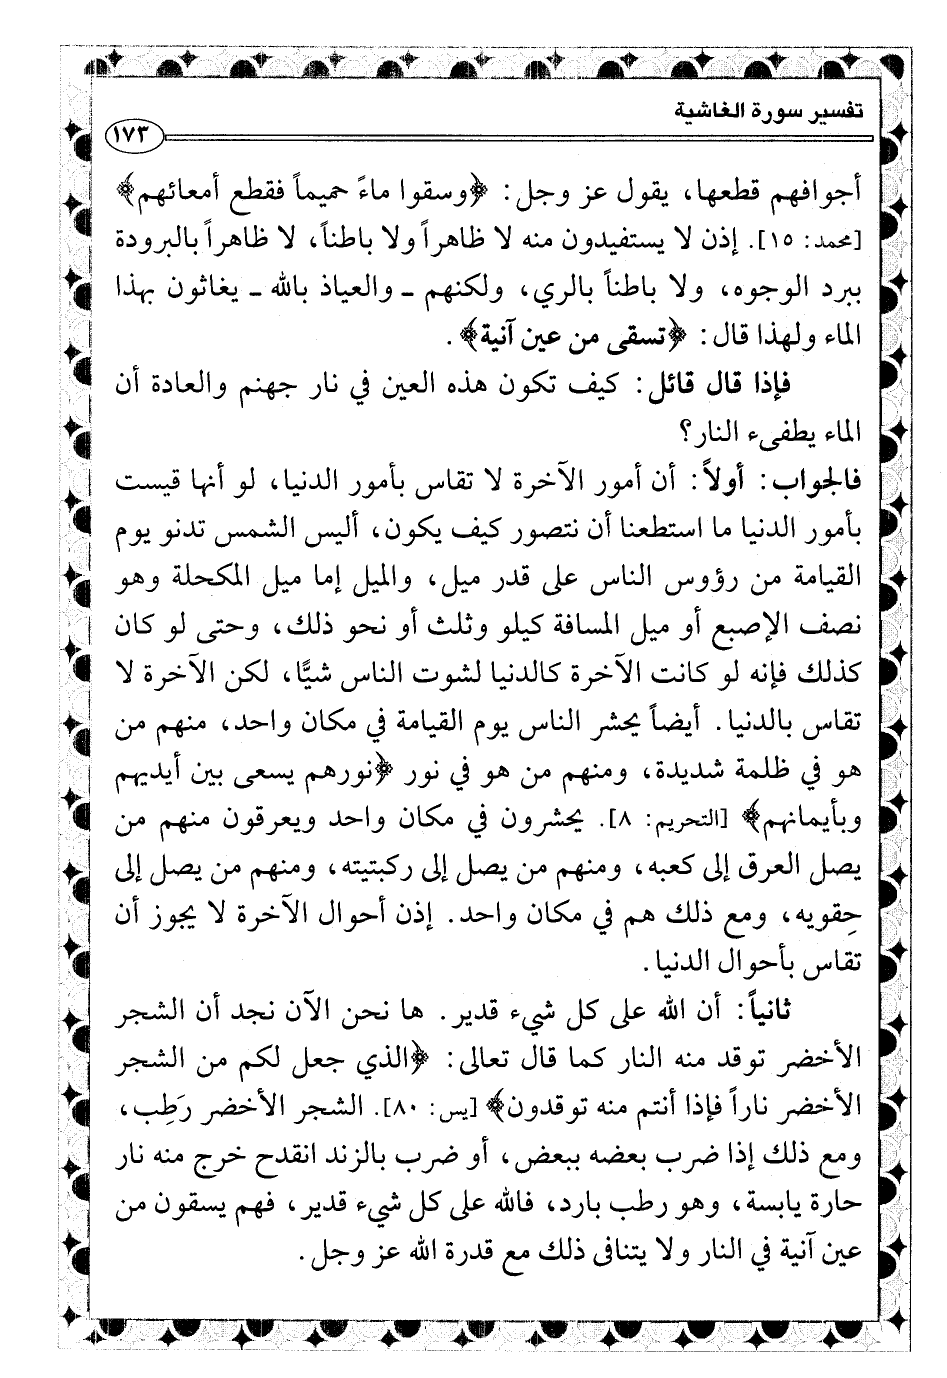 تفسير سورة الغاشية
١٧٣
أجوافهم قطعها، يقول عز وجل: ﴿وسقوا ماءً حميماً فقطع أمعائهم﴾
[محمد: ١٥]. إذن لا يستفيدون منه لا ظاهراً ولا باطناً، لا ظاهراً بالبرودة
ببرد الوجوه، ولا باطناً بالري، ولكنهم ـ والعياذ بالله ـ يغاثون بهذا
الماء ولهذا قال: ﴿تسقى من عين آنية﴾.
فإذا قال قائل: كيف تكون هذه العين في نار جهنم والعادة أن
الماء يطفىء النار؟
فالجواب: أولاً: أن أمور الآخرة لا تقاس بأمور الدنيا، لو أنها قيست
بأمور الدنيا ما استطعنا أن نتصور كيف يكون، أليس الشمس تدنو يوم
القيامة من رؤوس الناس على قدر ميل، والميل إما ميل المكحلة وهو
نصف الإصبع أو ميل المسافة كيلو وثلث أو نحو ذلك، وحتى لو كان
كذلك فإنه لو كانت الآخرة كالدنيا لشوت الناس شيًّا، لكن الآخرة لا
تقاس بالدنيا. أيضاً يحشر الناس يوم القيامة في مكان واحد، منهم من
هو في ظلمة شديدة، ومنهم من هو في نور ﴿نورهم يسعى بين أيديهم
وبأيمانهم﴾ [التحريم: ٨]. يحشرون في مكان واحد ويعرقون منهم من
يصل العرق إلى كعبه، ومنهم من يصل إلى ركبتيته، ومنهم من يصل إلى
حِقويه، ومع ذلك هم في مكان واحد. إذن أحوال الآخرة لا يجوز أن
تقاس بأحوال الدنيا.
ثانياً: أن الله على كل شيء قدير. ها نحن الآن نجد أن الشجر
الأخضر توقد منه النار كما قال تعالى: ﴿الذي جعل لكم من الشجر
الأخضر ناراً فإذا أنتم منه توقدون﴾ [يس: ٨٠]. الشجر الأخضر رَطِب،
ومع ذلك إذا ضرب بعضه ببعض، أو ضرب بالزند انقدح خرج منه نار
حارة يابسة، وهو رطب بارد، فالله على كل شيء قدير، فهم يسقون من
عين آنية في النار ولا يتنافى ذلك مع قدرة الله عز وجل.